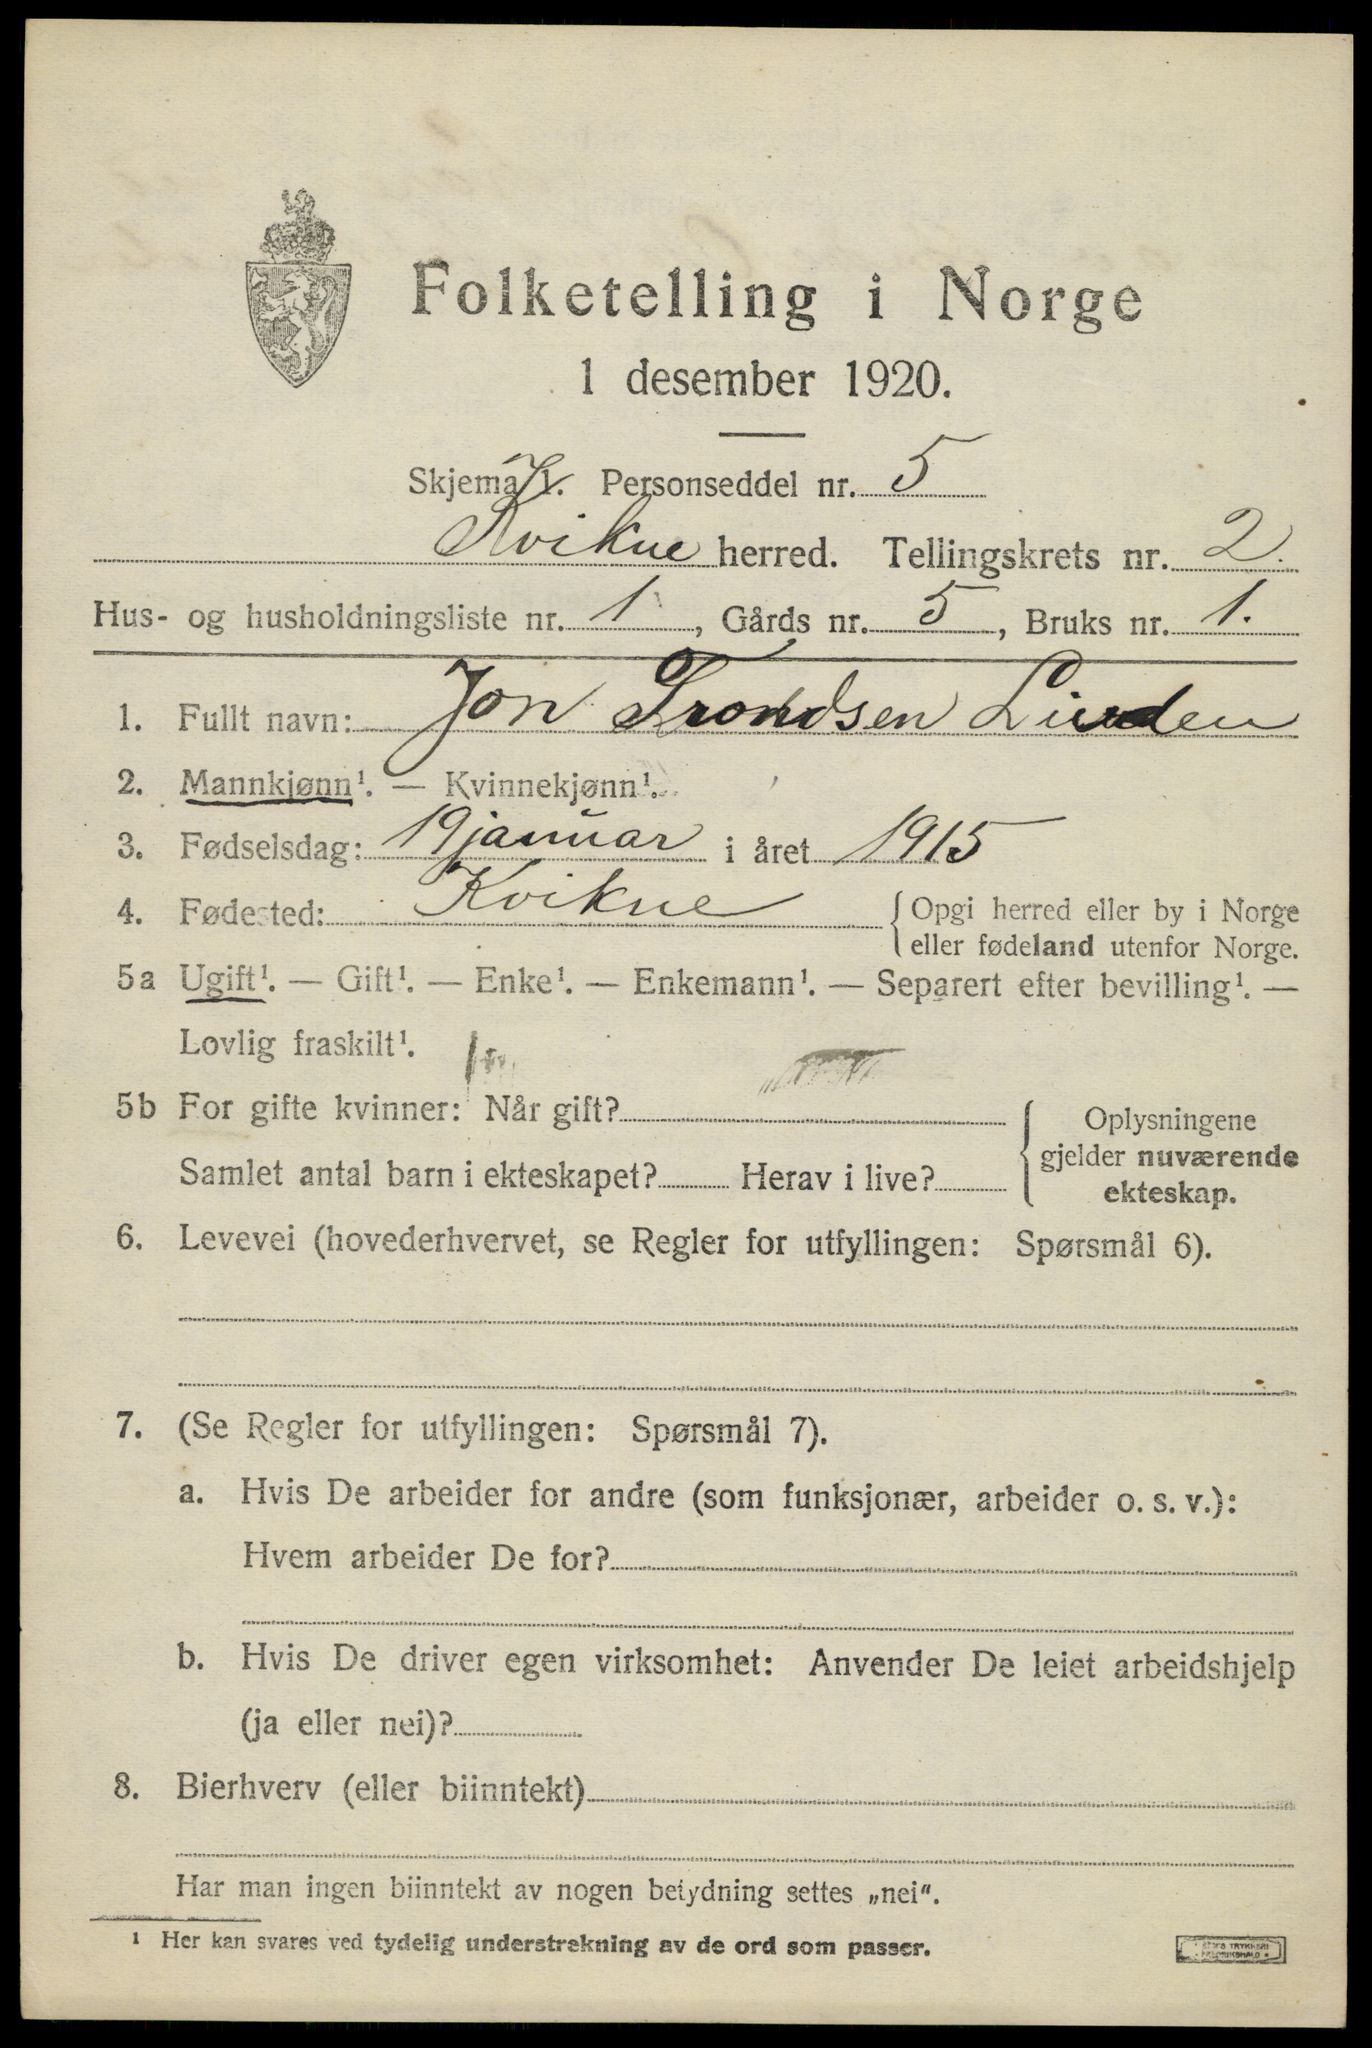 Folketelling i Norge
1 desember 1920.
Skjema 1. Personseddel nr. 5
Kvikne herred. Tellingskrets nr. 2.
Hus- og husholdningsliste nr. 1, Gårds nr. 5, Bruks nr. 1.
1. Fullt navn: Jon Trondsen Linden
2. Mannkjønn¹. — Kvinnekjønn¹.
3. Fødselsdag: 19 januar i året 1915
4. Fødested: Kvikne { Opgi herred eller by i Norge
eller fødeland utenfor Norge.
5a Ugift¹. — Gift¹. — Enke¹. — Enkemann¹. — Separert efter bevilling¹. —
Lovlig fraskilt¹.
5b For gifte kvinner: Når gift?
Samlet antal barn i ekteskapet? Herav i live?
{ Oplysningene
gjelder nuværende
ekteskap.
6. Levevei (hovederhvervet, se Regler for utfyllingen: Spørsmål 6).
7. (Se Regler for utfyllingen: Spørsmål 7).
a. Hvis De arbeider for andre (som funksjonær, arbeider o. s. v.):
Hvem arbeider De for?
b. Hvis De driver egen virksomhet: Anvender De leiet arbeidshjelp
(ja eller nei)?
8. Bierhverv (eller biinntekt)
Har man ingen biinntekt av nogen betydning settes „nei“.
¹ Her kan svares ved tydelig understrekning av de ord som passer.